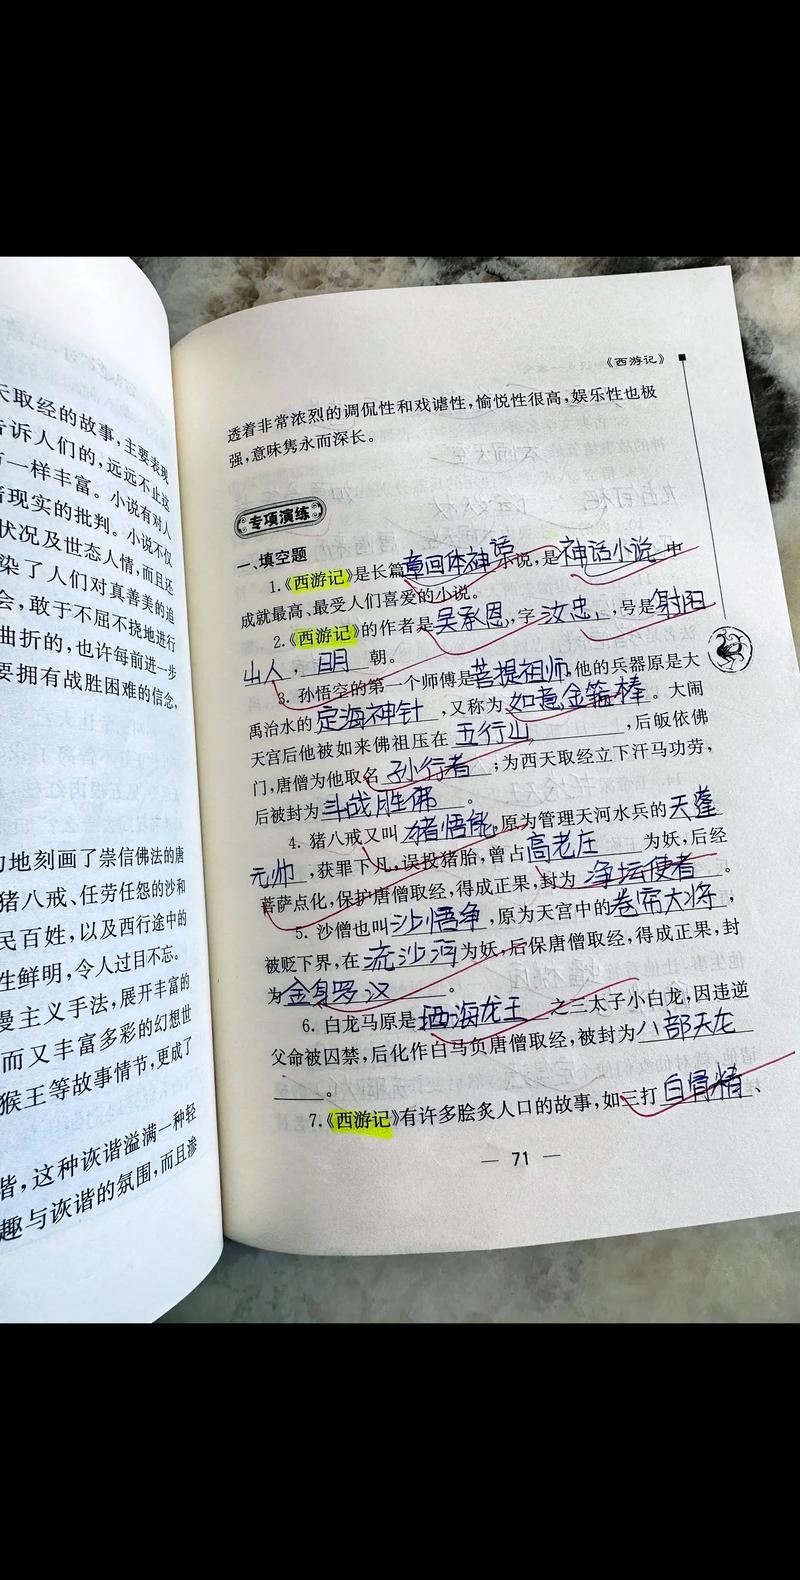 天取经的故事,主要表现
告诉人们的,远远不止这
一样丰富。小说有对人
现实的批判。小说不仅
状况及世态人情,而且还
染了人们对真善美的追
会,敢于不屈不挠地进行
曲折的,也许每前进一步
要拥有战胜困难的信念,
地刻画了崇信佛法的唐
猪八戒、任劳任怨的沙和
民百姓,以及西行途中的
生鲜明,令人过目不忘。
漫主义手法,展开丰富的
而又丰富多彩的幻想世
猴王等故事情节,更成了
谐,这种诙谐溢满一种轻
趣与诙谐的氛围,而且渗
《西游记》
透着非常浓烈的调侃性和戏谑性,愉悦性很高,娱乐性也极
强,意味隽永而深长。
专项演练
一、填空题
1.《西游记》是长篇章回体神话小说,是神话小说中
成就最高、最受人们喜爱的小说。
2.《西游记》的作者是吴承恩,字汝忠,号是射阳
山人,明朝。
3. 孙悟空的第一个师傅是菩提祖师,他的兵器原是大
禹治水的定海神针,又称为如意金箍棒。大闹
天宫后他被如来佛祖压在五行山,后皈依佛
门,唐僧为他取名孙行者;为西天取经立下汗马功劳,
后被封为斗战胜佛。
4. 猪八戒又叫猪悟能,原为管理天河水兵的天蓬
元帅,获罪下凡,误投猪胎,曾占高老庄为妖,后经
菩萨点化,保护唐僧取经,得成正果,封为净坛使者。
5. 沙僧也叫沙悟净,原为天宫中的卷帘大将,
被贬下界,在流沙河为妖,后保唐僧取经,得成正果,封
为金身罗汉。
6. 白龙马原是西海龙王之三太子小白龙,因违逆
父命被囚禁,后化作白马负唐僧取经,被封为八部天龙
。
7.《西游记》有许多脍炙人口的故事,如三打白骨精、
— 71 —